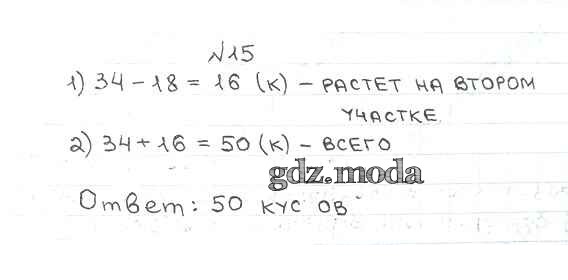 №15
1) 34 - 18 = 16 (к) - РАСТЕТ НА ВТОРОМ
УЧАСТКЕ.
2) 34 + 16 = 50 (к) - ВСЕГО
gdz.moda
Ответ: 50 КУС ОВ